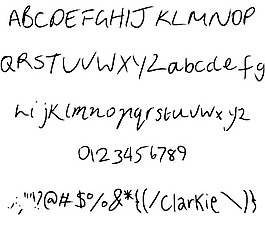 ABCDEFGHIJKLMNOP
QRSTUVWXYZabcdefg
hijklmnopqrstuvwxyz
0123456789
.:,;'"!?@#$%&*{(/Clarkie\)}